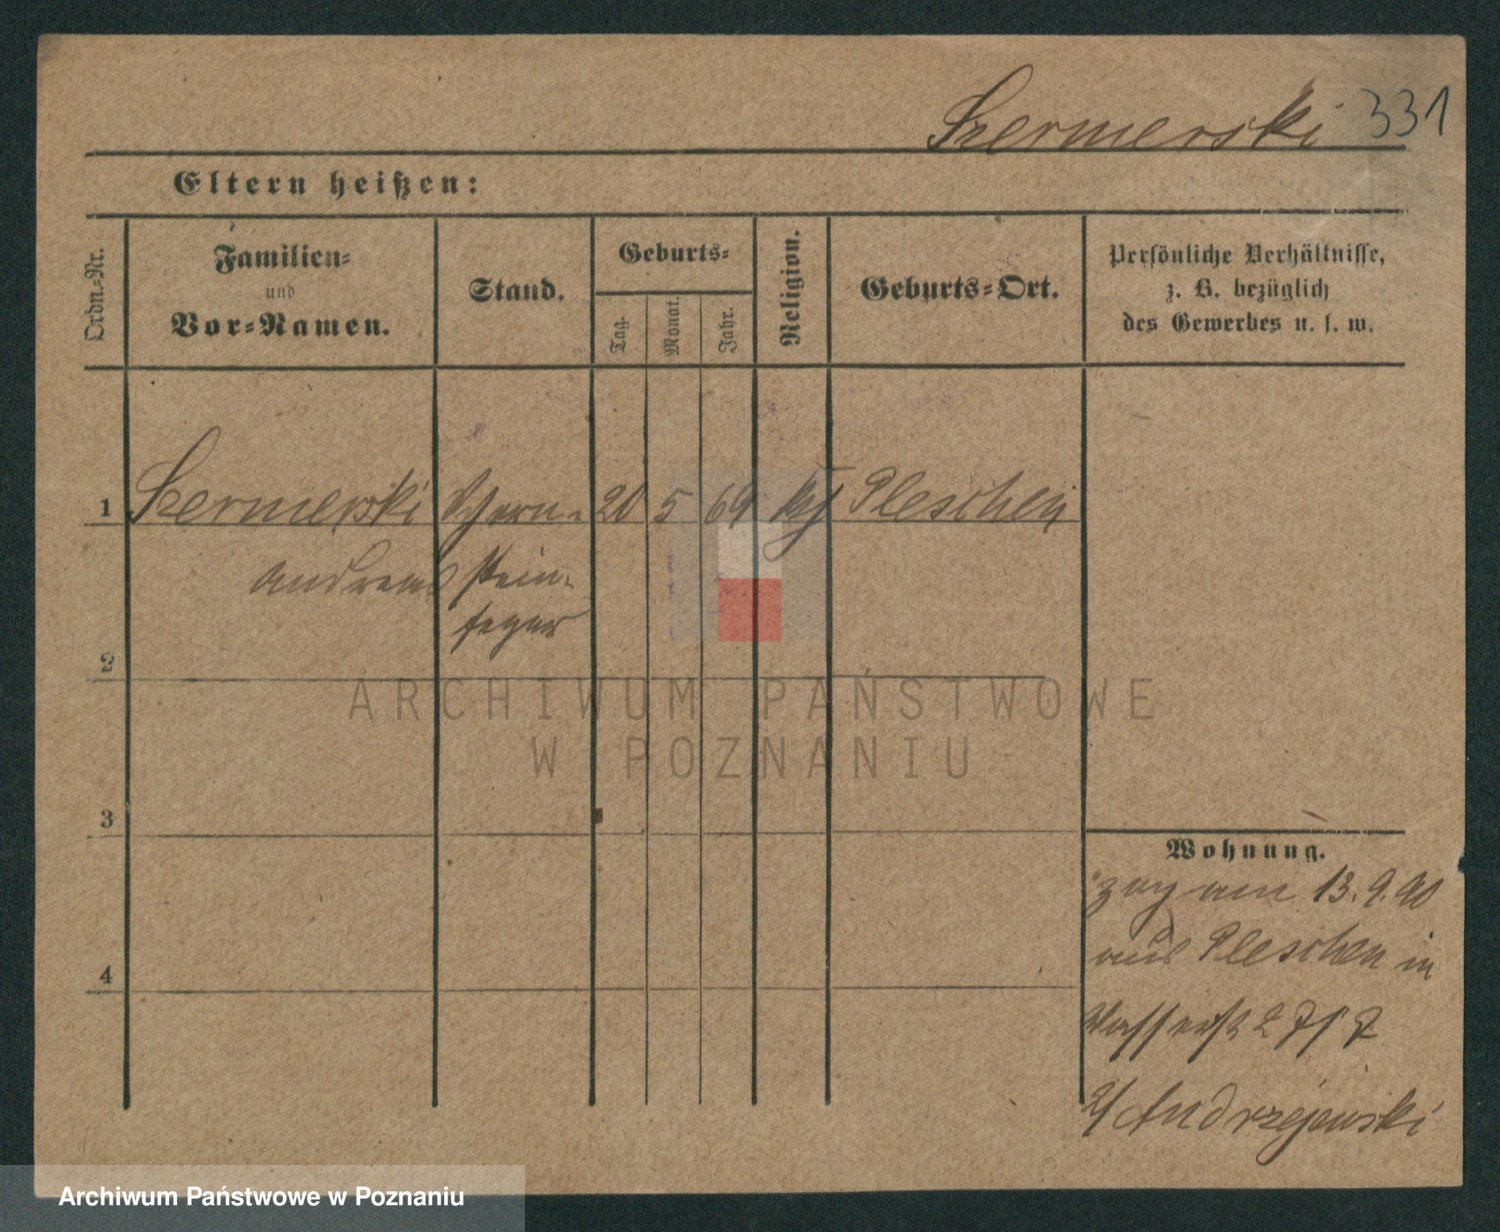 Szermerski 331
Eltern heißen:
Ordn.-Nr.
Familien-
und
Vor-Namen.
Stand.
Geburts-
Tag.
Monat.
Jahr.
Religion.
Geburts-Ort.
Persönliche Verhältnisse,
z. B. bezüglich
des Gewerbes u. s. w.
1 Szermerski Schorn- 20 5 69 kath Pleschen
Andreas stein-
feger
2
3
4
Wohnung.
zog am 13.9.90
aus Pleschen in
Wasserstr 27
Andrzejewski
ARCHIWUM PAŃSTWOWE
W POZNANIU
Archiwum Państwowe w Poznaniu